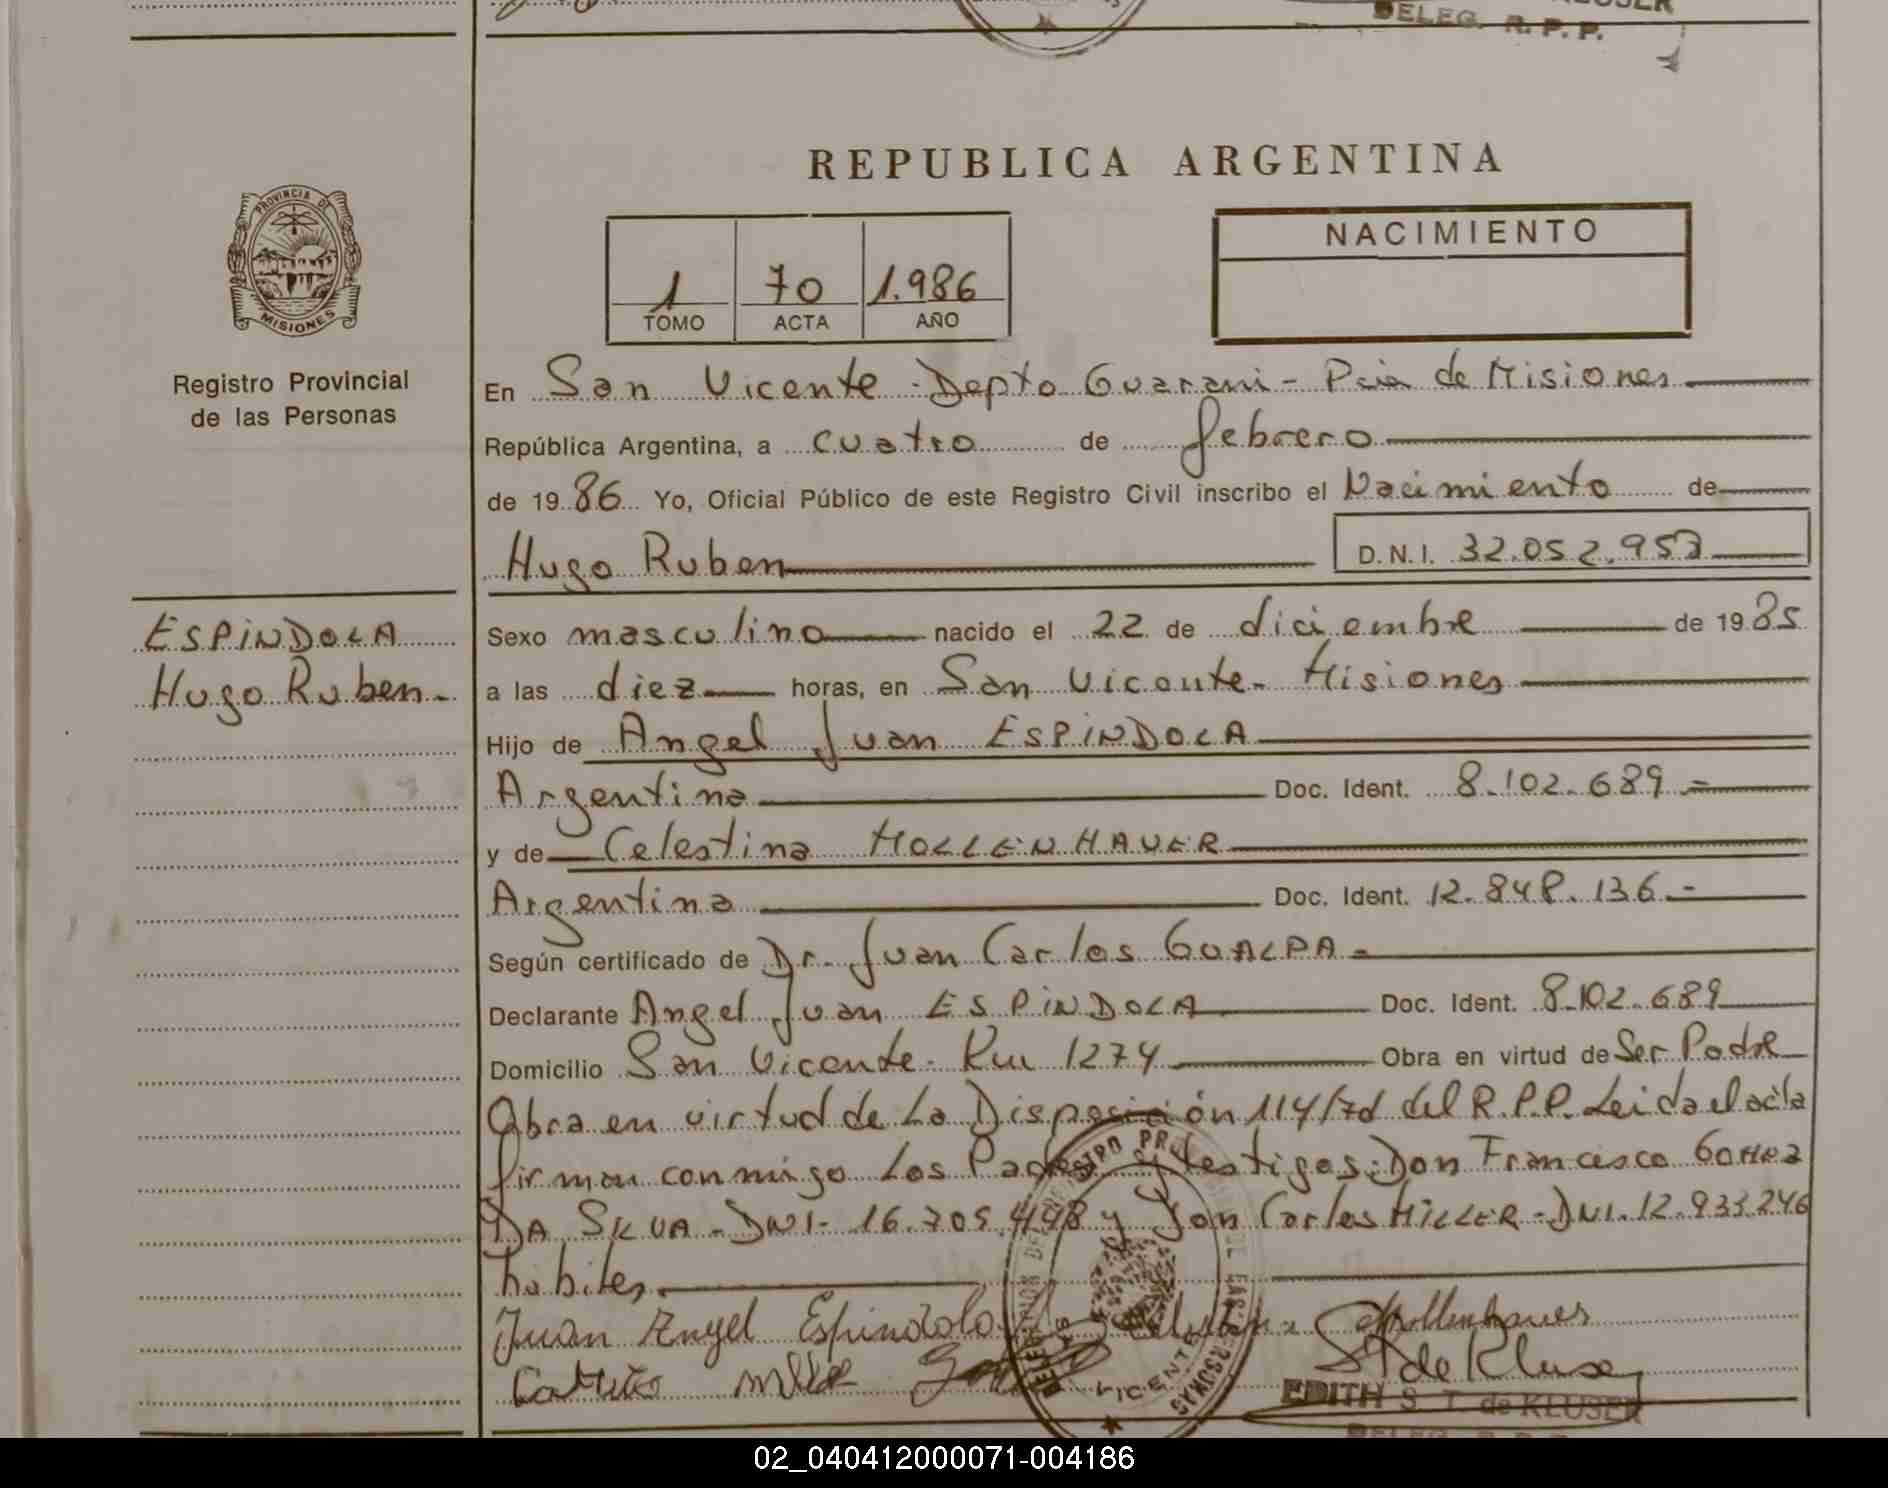 DELEG. R. P. P.
REPUBLICA ARGENTINA
PROVINCIA DE
MISIONES
1 70 1.986
TOMO ACTA AÑO
NACIMIENTO
Registro Provincial
de las Personas
En San Vicente - Depto Guarani - Pcia de Misiones
República Argentina, a cuatro de febrero
de 1986 Yo, Oficial Público de este Registro Civil inscribo el Nacimiento de
Hugo Ruben D.N.I. 32.052.953
ESPINDOLA
Hugo Ruben -
Sexo masculino nacido el 22 de diciembre de 1985
a las diez horas, en San Vicente - Misiones
Hijo de Angel Juan ESPINDOLA
Argentina Doc. Ident. 8.102.689.=
y de Celestina HOLLENHAUER
Argentina Doc. Ident. 12.848.136.-
Según certificado de Dr. Juan Carlos GUALPA -
Declarante Angel Juan ESPINDOLA Doc. Ident. 8.102.689
Domicilio San Vicente - Km 1274 Obra en virtud de Ser Padre
Obra en virtud de La Disposición 114/78 del R.P.P. Leida el acta
firman conmigo Los Padres y testigos: Don Francisco GOMEZ
DA SILVA - DNI - 16.709.448 y Don Carlos MILLER - DNI. 12.933.246
habiles.
Juan Angel Espindola
S T de Kluser
EDITH S. T. de KLUSER
02_040412000071-004186